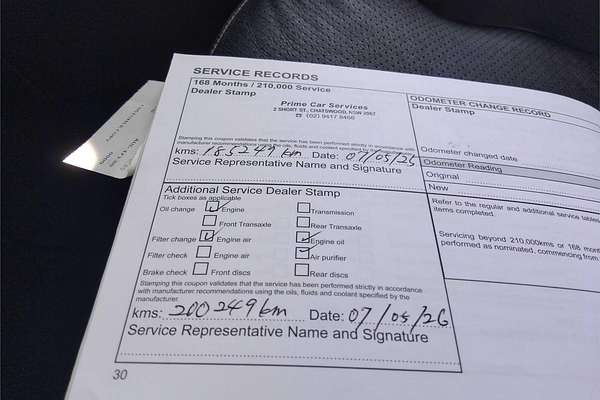 SERVICE RECORDS
168 Months / 210,000 Service
Dealer Stamp
Prime Car Services
2 SHORT ST, CHATSWOOD, NSW 2067
☎ (02) 9417 8450
Stamping this coupon validates that the service has been performed strictly in accordance with
manufacturer recommendations using the oils, fluids and coolant specified by the
kms: 185249 km Date: 07/05/25
Service Representative Name and Signature
Additional Service Dealer Stamp
Tick boxes as applicable
Oil change Engine Transmission
Front Transaxle Rear Transaxle
Filter change Engine air Engine oil
Filter check Engine air Air purifier
Brake check Front discs Rear discs
Stamping this coupon validates that the service has been performed strictly in accordance
with manufacturer recommendations using the oils, fluids and coolant specified by the
manufacturer.
kms: 200249km Date: 07/05/26
Service Representative Name and Signature
30
ODOMETER CHANGE RECORD
Dealer Stamp
Odometer changed date
Odometer Reading
Original
New
Refer to the regular and additional service tables
items completed.
Servicing beyond 210,000kms or 168 mont
performed as nominated, commencing from